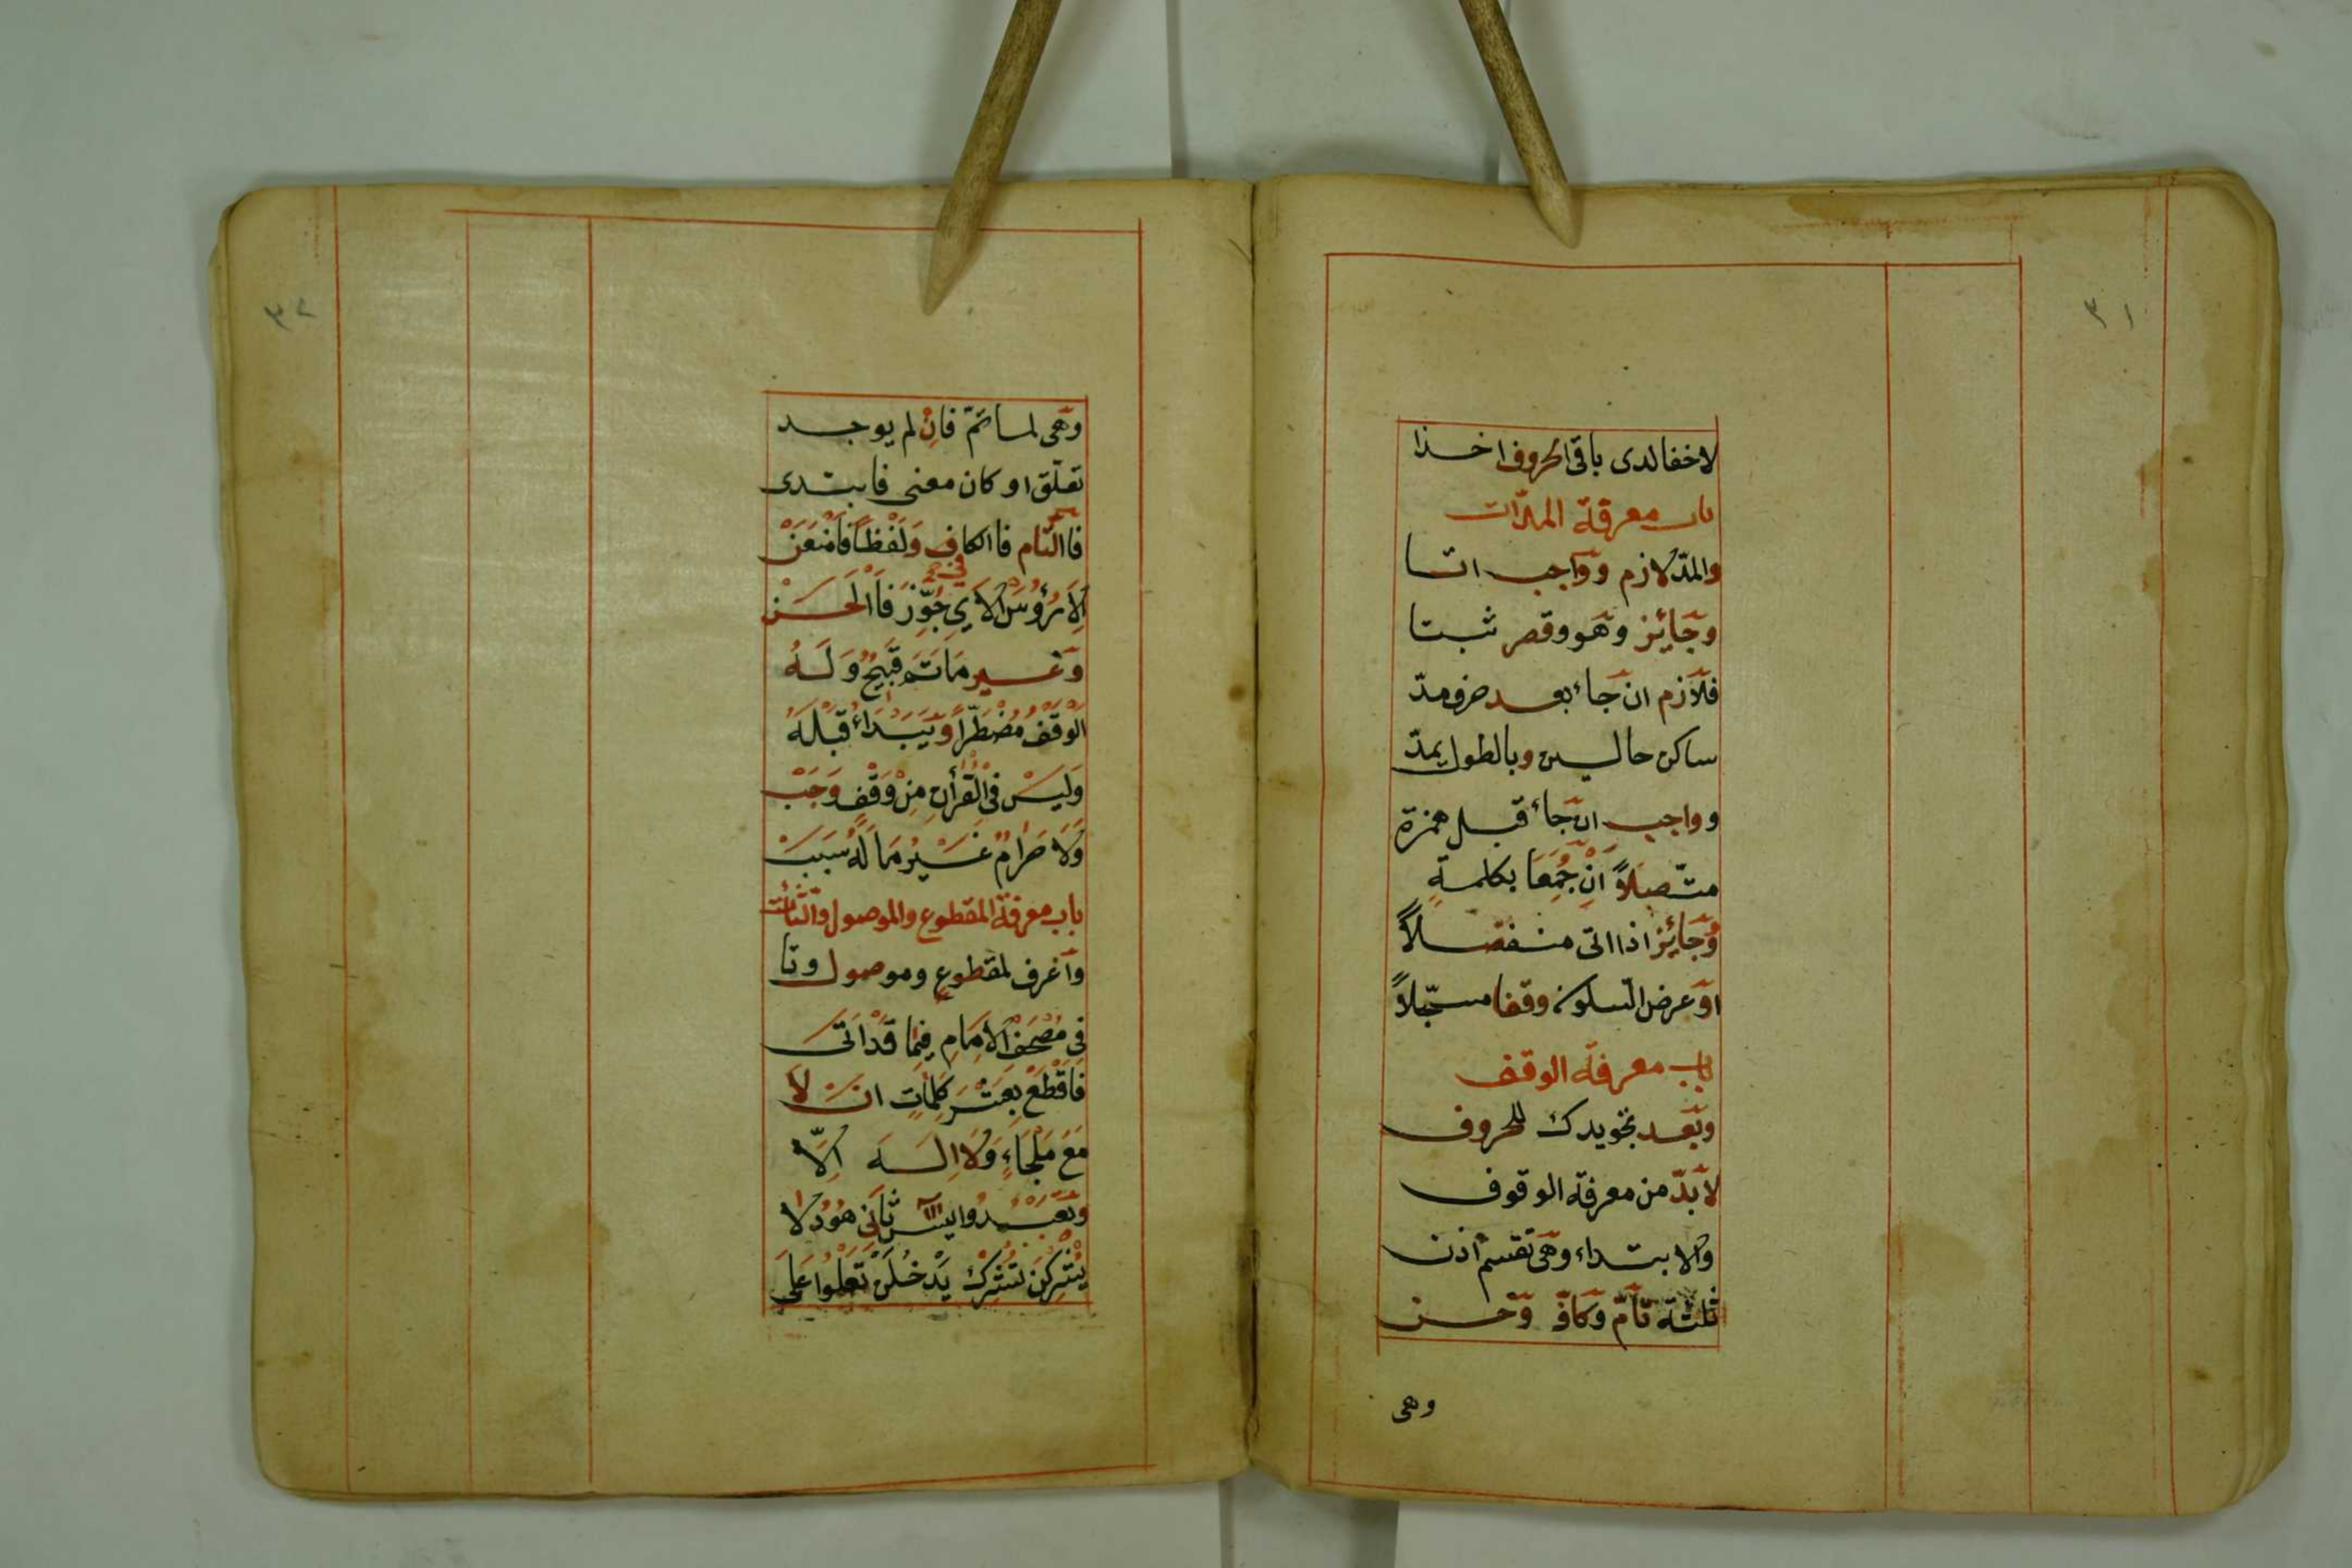 ٣١
لاخفا لدى باقى الحروف اخـــذا
باب معرفة المدّات
والمدّ لازم وواجب اتـــا
وجَائِز وهَو وقصر ثبـتا
فلازم ان جاء بعد حرف مدّ
ساكن حالــين وبالطول يمدّ
وواجب ان جاء قبــل همزة
متّصلاً اِنْ جُمِعَا بكلمــةٍ
وَجَائِز اذا اتى منــفصــلاً
اوَ عرض السكون وقفا مسجّلاً
باب معرفة الوقف
وبَعــد تجويدك للحروف
لا بدّ من معرفة الوقوف
والابتــداء وهَى تقسم اذن
ثلثة تامّ وكافٍ وحسن
وهى
٣٢
وهَى لمــا تَمّ فاِنْ لم يوجــد
تعلّق او كان معنى فابتــدى
فاالتّام فاالكافِ وَلَفْظاً فَامْنَعَنْ
اِلاَ رُؤُسَ الاَيِ جُوِّزَ فَاالْحَسَنْ
وَغَــيرِ مَاتَمَ قَبِيحٌ وَلَــهُ
اَلْوَقْفُ مُضْطَرّاً وَيَبْدَاءُ قَبْلَهُ
وَلَيْسَ فِى الْقُرْأٰنِ مِنْ وَقْفٍ وَجَبْ
وَلَا حَرَامٌ غَــيْرُ مَا لَهُ سَبَبْ
باب معرفة المقطوع والموصول والتّاآت
وَاَعْرف لمقطوعٍ وموصول وتا
فى مُصْحَفِ الاِمَامِ فِيمَا قَدْ اَتَى
فَاقْطَعْ بِعَشْرِ كَلِمَاتٍ اَنْ لَا
مَعَ مَلْجَاءٍ وَلَا اِلــهَ اِلَّا
وَتَعْبُــدُوا يٰسٓ ثَانَى هُودَ لَا
يُشْرِكْنَ تُشْرِكْ يَدْخُلَنْ تَعْلُوا عَلَى